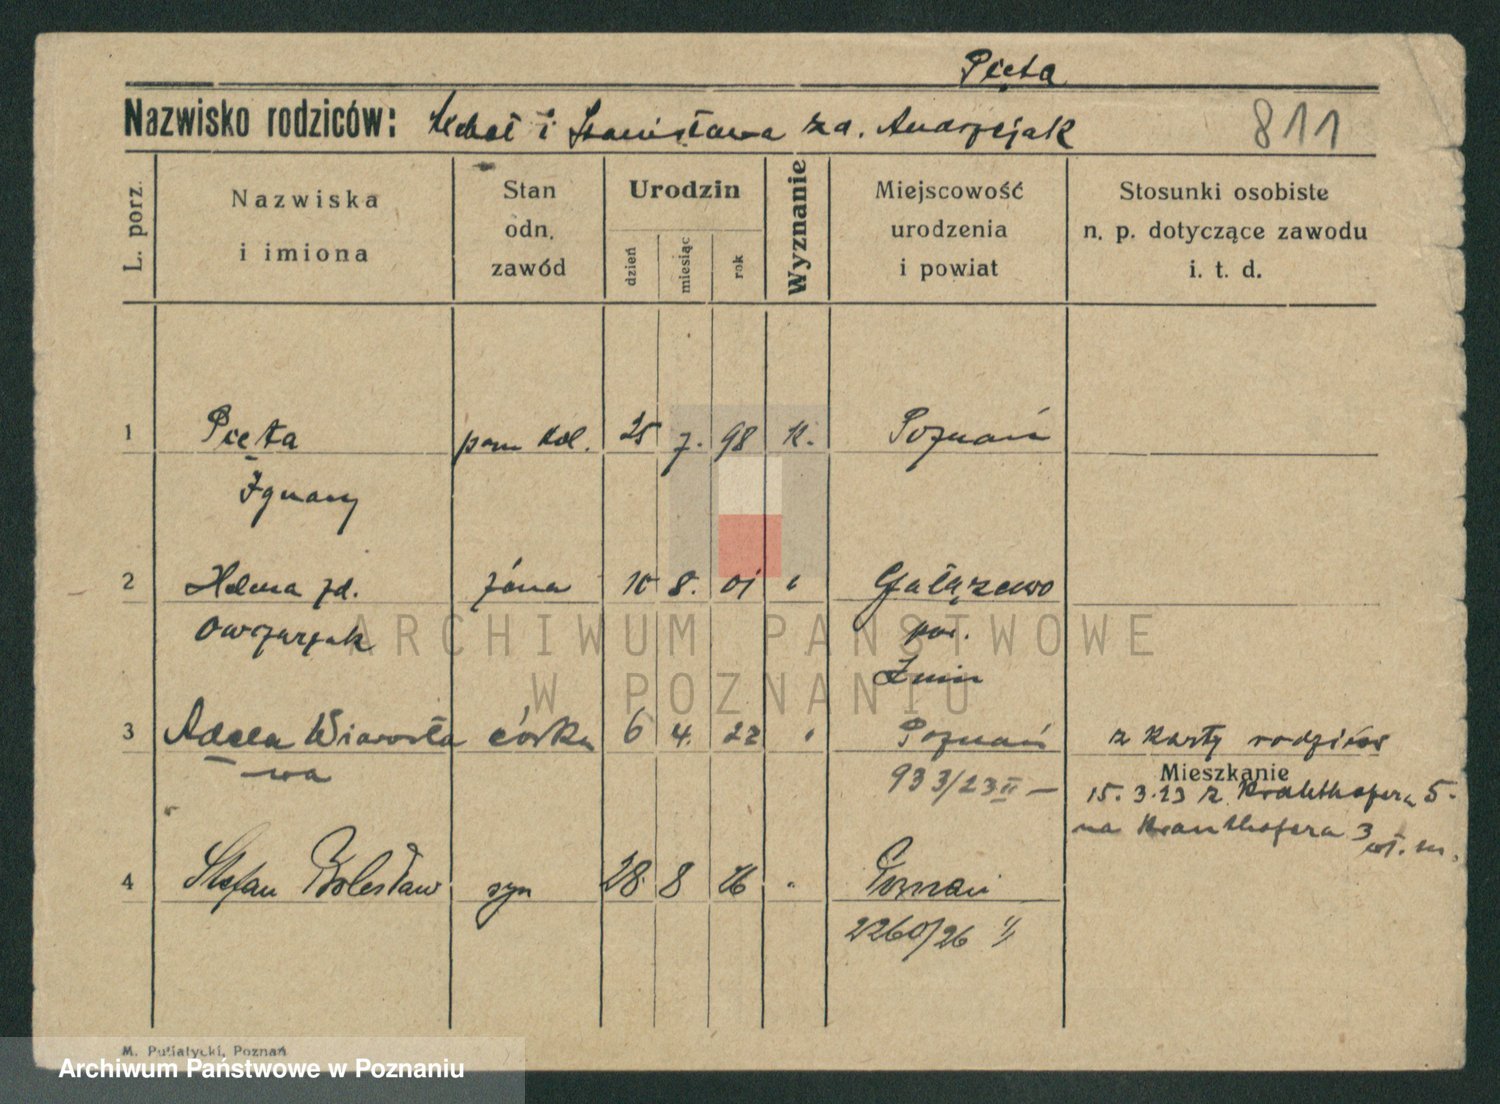 Pięta
Nazwisko rodziców: Michał i Stanisława za. Andrzejak 811
L. porz.
Nazwiska
i imiona
Stan
odn.
zawód
Urodzin
dzień
miesiąc
rok
Wyznanie
Miejscowość
urodzenia
i powiat
Stosunki osobiste
n. p. dotyczące zawodu
i. t. d.
1 Pięta pom kol. 25 7. 98 K. Poznań
Ignacy
2 Helena zd. żona 10 8. 01 " Gałązewo
Owczarzak pow.
Żnin
3 Adela Wiarosła córka 6 4. 22 " Poznań z karty rodziców
wa 933/23 II — Mieszkanie
15. 3. 23 z Kranthofera 5.
na Kranthofera 3
wł. m.
4 Stefan Bolesław syn 28. 8 26 " Poznań
2260/26 II
M. Putiatycki, Poznań
ARCHIWUM PAŃSTWOWE
W POZNANIU
Archiwum Państwowe w Poznaniu